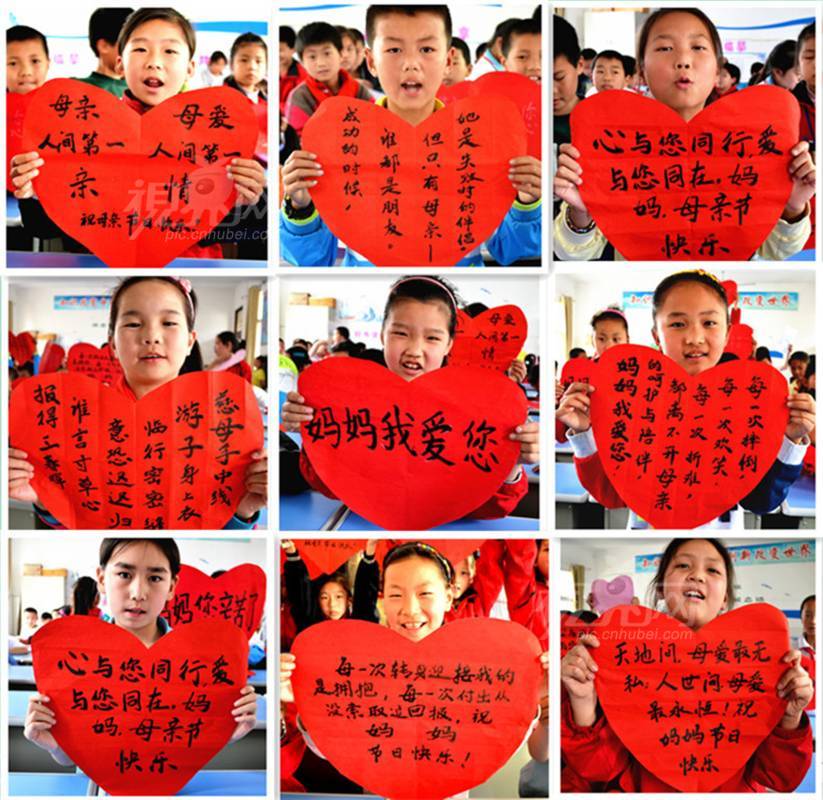 母亲
人间第一
亲
母爱
人间第一
情
祝母亲节日快乐
視界网
pic.cnhubei.com
成功的时候,
谁都是朋友。
但只有母亲—
她是失败时的伴侣。
心与您同行,爱
与您同在,妈
妈,母亲节
快乐
慈母手中线
游子身上衣
临行密密缝
意恐迟迟归
谁言寸草心
报得三春晖
妈妈我爱您
母爱
人间第一
情
每一次摔倒,
每一次欢笑,
每一次折难,
都离不开母亲
的呵护与陪伴,
妈妈我爱您!
改变世界
心与您同行,爱
与您同在,妈
妈,母亲节
快乐
妈您辛苦了
每一次转身迎接我的
是拥抱,每一次付出从
没索取过回报,祝
妈 妈
节日快乐!
天地间,母爱最无
私;人世间,母爱
最永恒!祝
妈妈节日
快乐
创新改变世界
pic.cnhubei.com